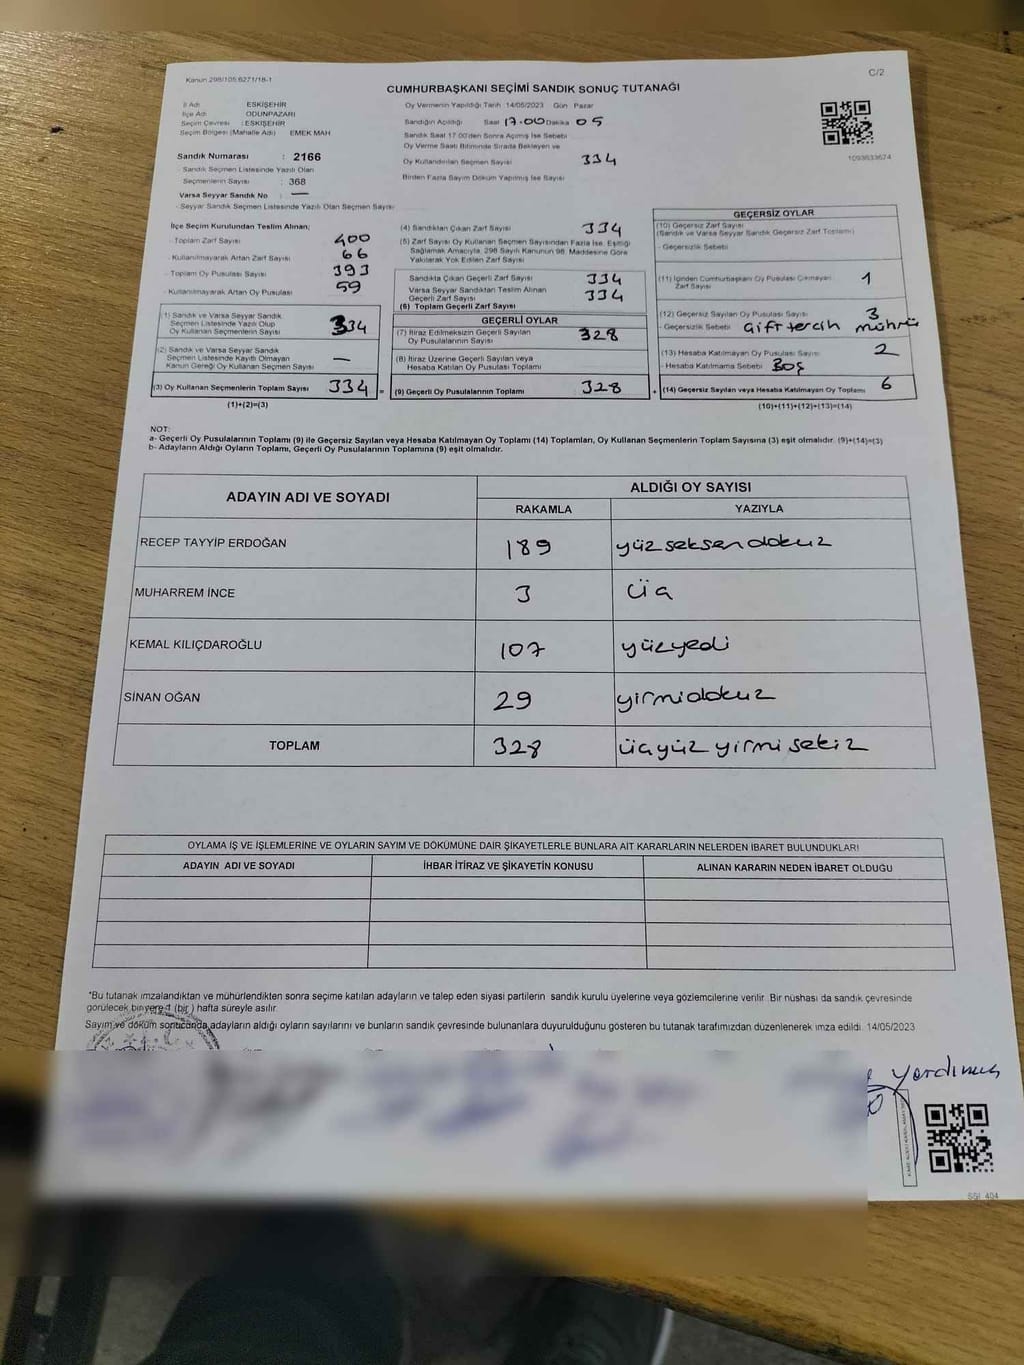 Kanun 298/105 6271/18-1
C/2
CUMHURBAŞKANI SEÇİMİ SANDIK SONUÇ TUTANAĞI
İl Adı ESKİŞEHİR
İlçe Adı ODUNPAZARI
Seçim Çevresi : ESKİŞEHİR
Seçim Bölgesi (Mahalle Adı) EMEK MAH
Sandık Numarası : 2166
- Sandık Seçmen Listesinde Yazılı Olan
Seçmenlerin Sayısı : 368
Varsa Seyyar Sandık No : —
- Seyyar Sandık Seçmen Listesinde Yazılı Olan Seçmen Sayısı
Oy Vermenin Yapıldığı Tarih 14/05/2023 Gün Pazar
Sandığın Açıldığı Saat 17.00 Dakika 05
Sandık Saat 17 00'den Sonra Açılmış İse Sebebi
Oy Verme Saati Bitiminde Sırada Bekleyen ve
Oy Kullandırılan Seçmen Sayısı 334
Birden Fazla Sayım Döküm Yapılmış İse Sayısı
1093633674
İlçe Seçim Kurulundan Teslim Alınan;
- Toplam Zarf Sayısı 400
- Kullanılmayarak Artan Zarf Sayısı 66
- Toplam Oy Pusulası Sayısı 393
- Kullanılmayarak Artan Oy Pusulası 59
(1) Sandık ve Varsa Seyyar Sandık
Seçmen Listesinde Yazılı Olup
Oy Kullanan Seçmenlerin Sayısı 334
(2) Sandık ve Varsa Seyyar Sandık
Seçmen Listesinde Kayıtlı Olmayan
Kanun Gereği Oy Kullanan Seçmen Sayısı —
(3) Oy Kullanan Seçmenlerin Toplam Sayısı 334 =
(1)+(2)=(3)
(4) Sandıktan Çıkan Zarf Sayısı 334
(5) Zarf Sayısı Oy Kullanan Seçmen Sayısından Fazla İse, Eşitliği
Sağlamak Amacıyla, 298 Sayılı Kanunun 98. Maddesine Göre
Yakılarak Yok Edilen Zarf Sayısı
Sandıkta Çıkan Geçerli Zarf Sayısı 334
Varsa Seyyar Sandıktan Teslim Alınan
Geçerli Zarf Sayısı 334
(6) Toplam Geçerli Zarf Sayısı
GEÇERLİ OYLAR
(7) İtiraz Edilmeksizin Geçerli Sayılan
Oy Pusulalarının Sayısı 328
(8) İtiraz Üzerine Geçerli Sayılan veya
Hesaba Katılan Oy Pusulası Toplamı
(9) Geçerli Oy Pusulalarının Toplamı 328 +
GEÇERSİZ OYLAR
(10) Geçersiz Zarf Sayısı
(Sandık ve Varsa Seyyar Sandık Geçersiz Zarf Toplamı)
- Geçersizlik Sebebi
(11) İçinden Cumhurbaşkanı Oy Pusulası Çıkmayan
Zarf Sayısı 1
(12) Geçersiz Sayılan Oy Pusulası Sayısı 3
- Geçersizlik Sebebi Çift tercih mührü
(13) Hesaba Katılmayan Oy Pusulası Sayısı 2
- Hesaba Katılmama Sebebi Boş
(14) Geçersiz Sayılan veya Hesaba Katılmayan Oy Toplamı 6
(10)+(11)+(12)+(13)=(14)
NOT:
a- Geçerli Oy Pusulalarının Toplamı (9) ile Geçersiz Sayılan veya Hesaba Katılmayan Oy Toplamı (14) Toplamları, Oy Kullanan Seçmenlerin Toplam Sayısına (3) eşit olmalıdır. (9)+(14)=(3)
b- Adayların Aldığı Oyların Toplamı, Geçerli Oy Pusulalarının Toplamına (9) eşit olmalıdır.
ADAYIN ADI VE SOYADI
ALDIĞI OY SAYISI
RAKAMLA YAZIYLA
RECEP TAYYİP ERDOĞAN 189 yüzseksendokuz
MUHARREM İNCE 3 üç
KEMAL KILIÇDAROĞLU 107 yüzyedi
SİNAN OĞAN 29 yirmidokuz
TOPLAM 328 üçyüzyirmisekiz
OYLAMA İŞ VE İŞLEMLERİNE VE OYLARIN SAYIM VE DÖKÜMÜNE DAİR ŞİKAYETLERLE BUNLARA AİT KARARLARIN NELERDEN İBARET BULUNDUKLARI
ADAYIN ADI VE SOYADI İHBAR İTİRAZ VE ŞİKAYETİN KONUSU ALINAN KARARIN NEDEN İBARET OLDUĞU
*Bu tutanak imzalandıktan ve mühürlendikten sonra seçime katılan adayların ve talep eden siyasi partilerin sandık kurulu üyelerine veya gözlemcilerine verilir. Bir nüshası da sandık çevresinde
görülecek bir yere 1 (bir) hafta süreyle asılır.
Sayım ve döküm sonucunda adayların aldığı oyların sayılarını ve bunların sandık çevresinde bulunanlara duyurulduğunu gösteren bu tutanak tarafımızdan düzenlenerek imza edildi. 14/05/2023
SGİ 404